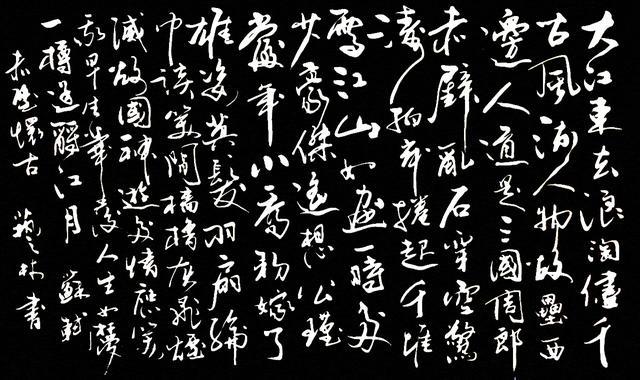 大江東去浪淘儘千
古風流人物故壘西
邊人道是三國周郎
赤壁亂石穿空驚
濤拍岸捲起千堆
雪江山如畫一時多
少豪傑遙想公瑾
當年小喬初嫁了
雄姿英髮羽扇綸
巾談笑間檣櫓灰飛煙
滅故國神遊多情應笑
我早生華髮人生如夢
一樽還酹江月 蘇軾
赤壁懷古 林書